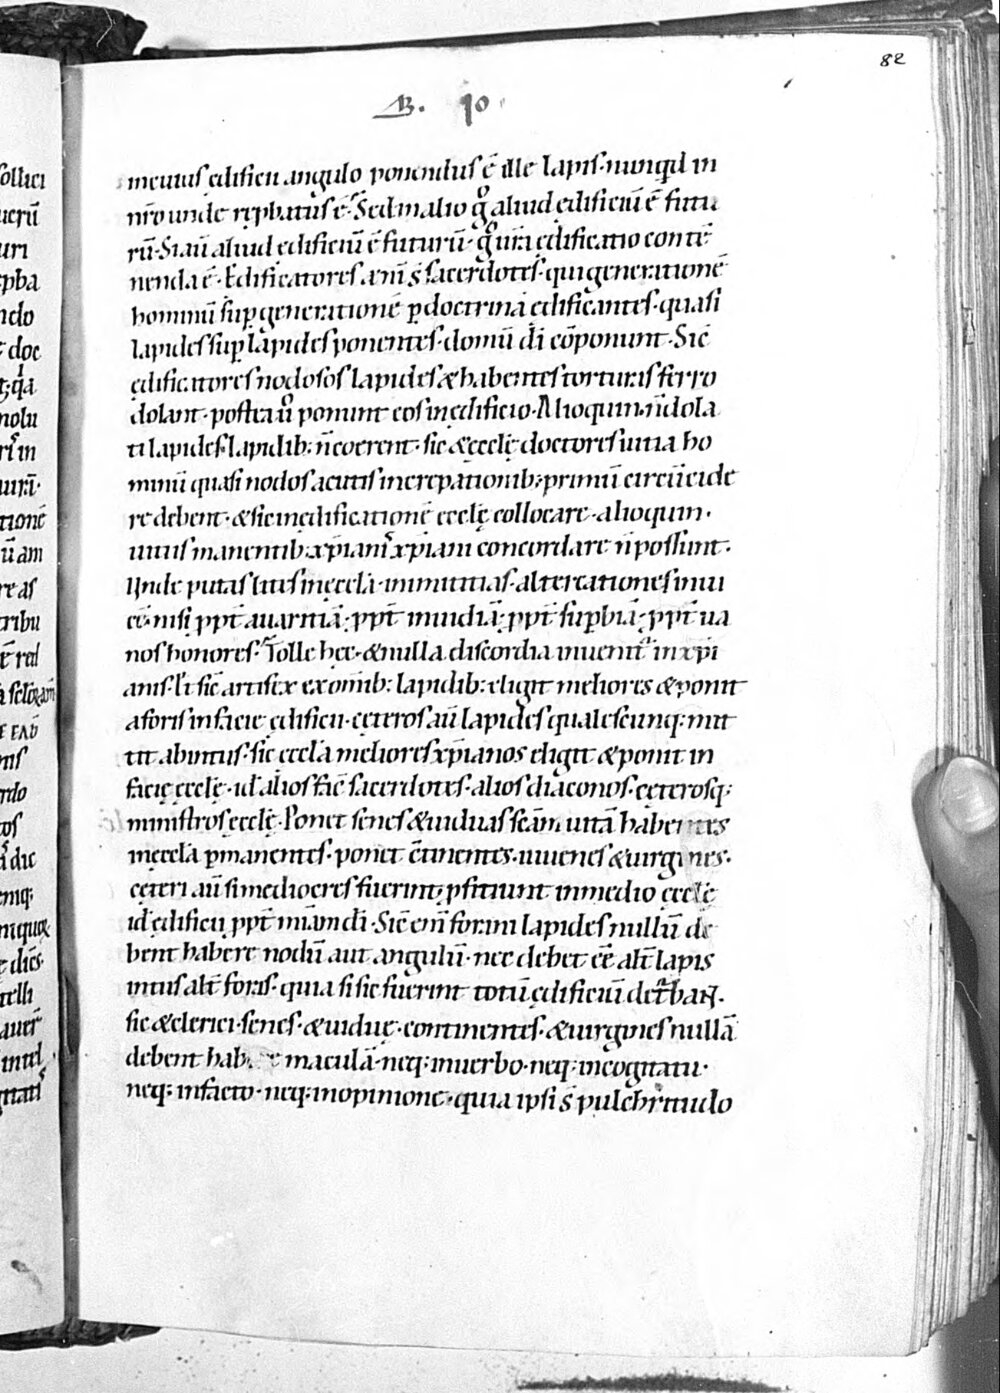 82
B. 10
incuius ędificii angulo ponendus ē ille lapis. nunqd in
nr̄o unde rep̄batus ē. Sed in alio g° aliud edificiū ē futu
rū. Si aū aliud ędificiū ē futurū. g° ur̄a ędificatio contē
nenda ē. Edificatores aūt s̄ sacerdotes. qui generationē
hominū sup generationē p doctrinā edificantes. quasi
lapides sup lapides ponentes. domū dī cōponunt. Sic̄
ędificatores nodosos lapides & habentes torturas ferro
dolant. postea ů ponunt eos inedificio. Alioquin. n̄ dola
ti lapides lapidib; n̄ coerent. sic & ęcclę doctores uitia ho
minū quasi nodos acutis increpationib; primū circūcide
re debent. & sic inędificationē ecclę collocare. alioquin.
uitiis manentib. xp̄iani xp̄iani concordare n̄ possunt.
Unde putas lites inęccl̄a. inimicitias. altercationes inui
cē. nisi ppt̄ auaritiā. ppt̄ inuidiā. ppt̄ supbiā. ppt̄ ua
nos honores. Tolle hęc. & nulla discordia inuenit᷑ in xp̄i
anis. Ut sic̄ artifex ex om̄ib: lapidib: eligit meliores & ponit
aforis infacie ędificii. cęteros aū lapides qualescunq: mit
tit abintus. sic eccl̄a meliores xp̄ianos eligit & ponit in
facie ęcclę. id alios fac̄ sacerdotes. alios diaconos. cęterosq;
ministros ecclę. Ponet senes & uiduas sc̄am uitā habentes
inęccl̄a pmanentes. ponet c̄tinentes. iuuenes & uirgines.
cęteri aū si mediocres fuerint. pficiunt inmedio ecclę
id ędificii ppt̄ mīam dī. Sic̄ enī forīni lapides nullū de
bent habere nodū aut angulū. nec debet cē alt̄ lapis
intus alt̄ foris. quia si sic fuerint totū ędificiū det᷑bant᷑.
sic & clerici. senes. & uiduę. continentes. & uirgines nullā
debent habere maculā. neq: inuerbo. neq: incogitatu.
neq: infacto. neq: inopinione. quia ipsi s̄ pulchritudo